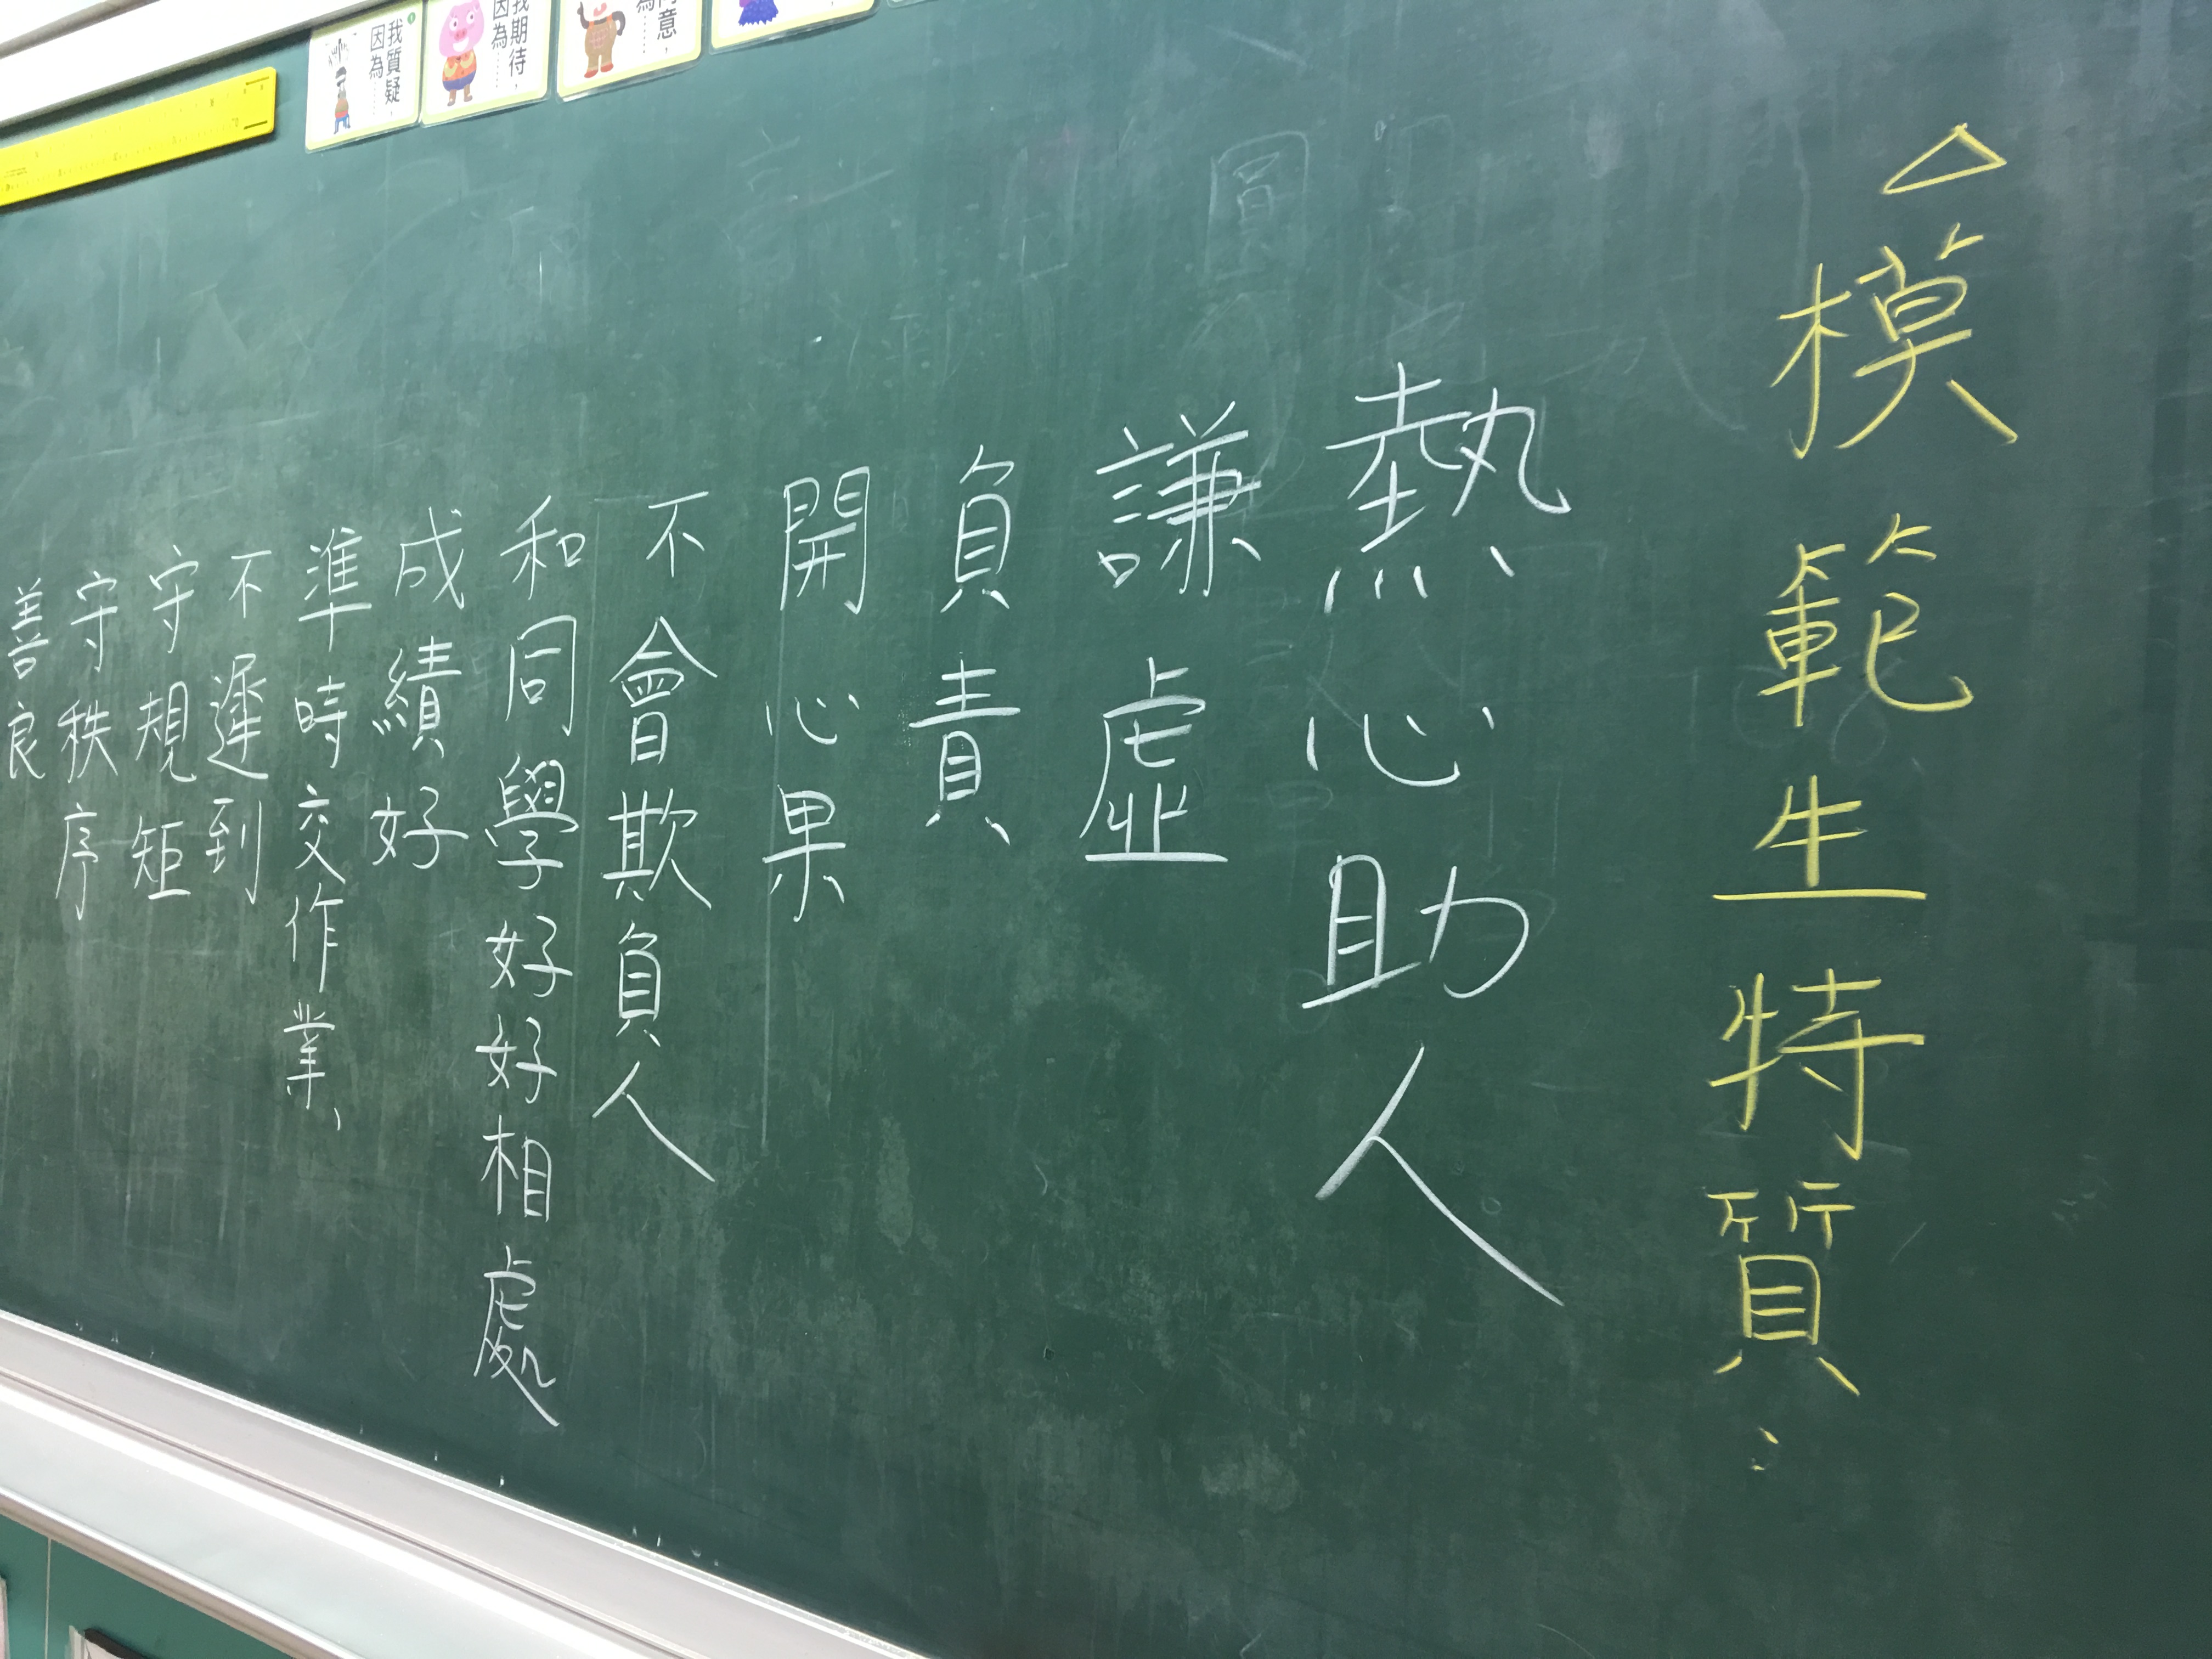 △模範生特質：
熱心助人
謙虛
負責
開心果
不會欺負人
和同學好好相處
成績好
準時交作業、
不遲到
守規矩
守秩序
善良
我期待，
因為……
我質疑，
因為……